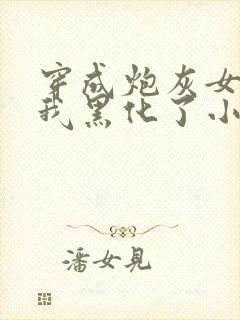 穿成炮灰女
我黑化了小
潘女見